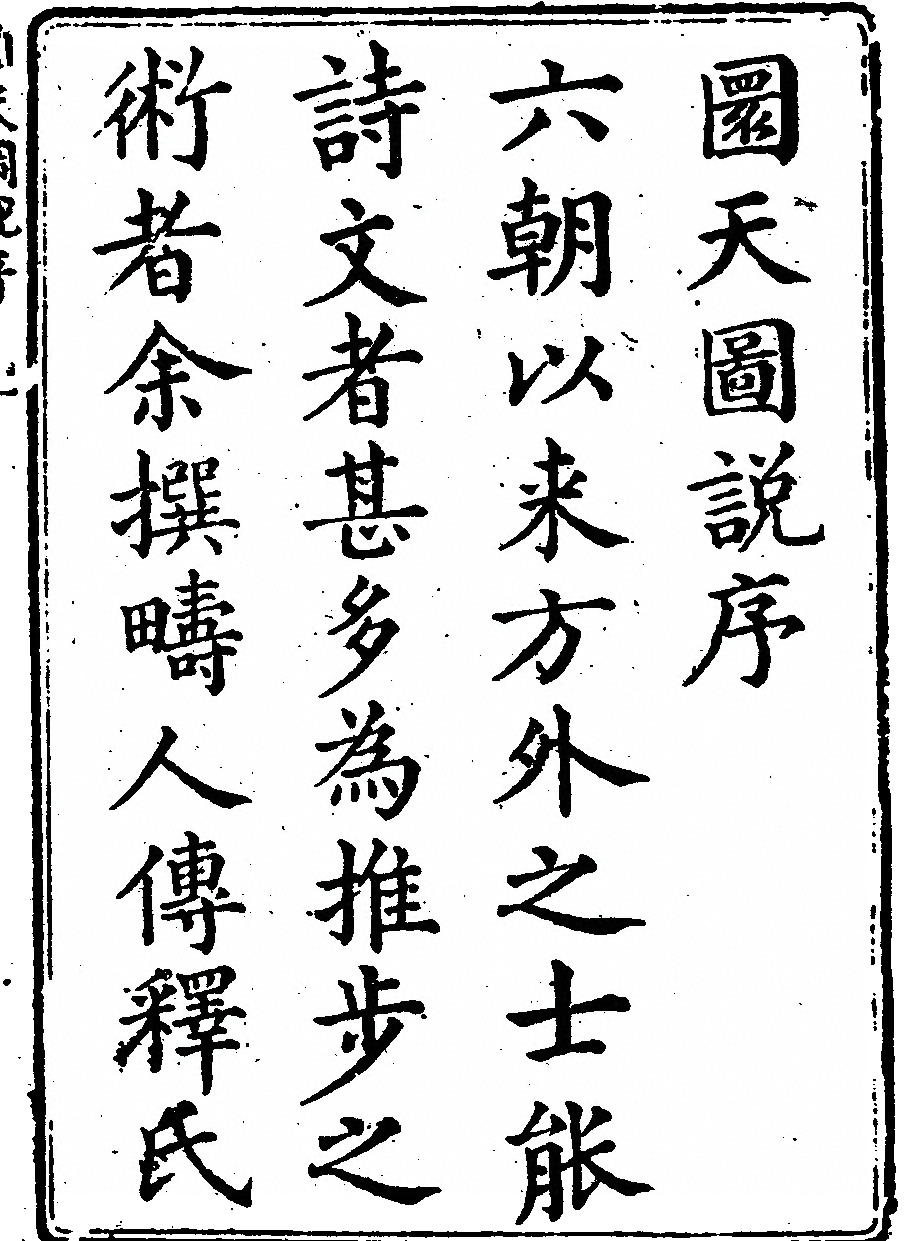 圜天圖說序
六朝以来方外之士能
詩文者甚多為推步之
術者余撰疇人傳釋氏